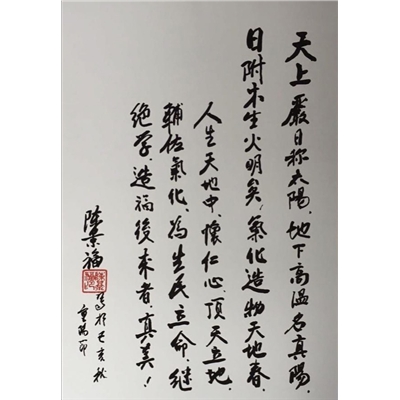 天上嚴日称太陽、地下高温名真陽、
日附木生火明矣!氣化造物天地春、
人生天地中、懷仁心、頂天立地、
輔佐氣化、為生民立命、継
绝学、造福後来者、真美!
陈景福
写於己亥秋
重陽